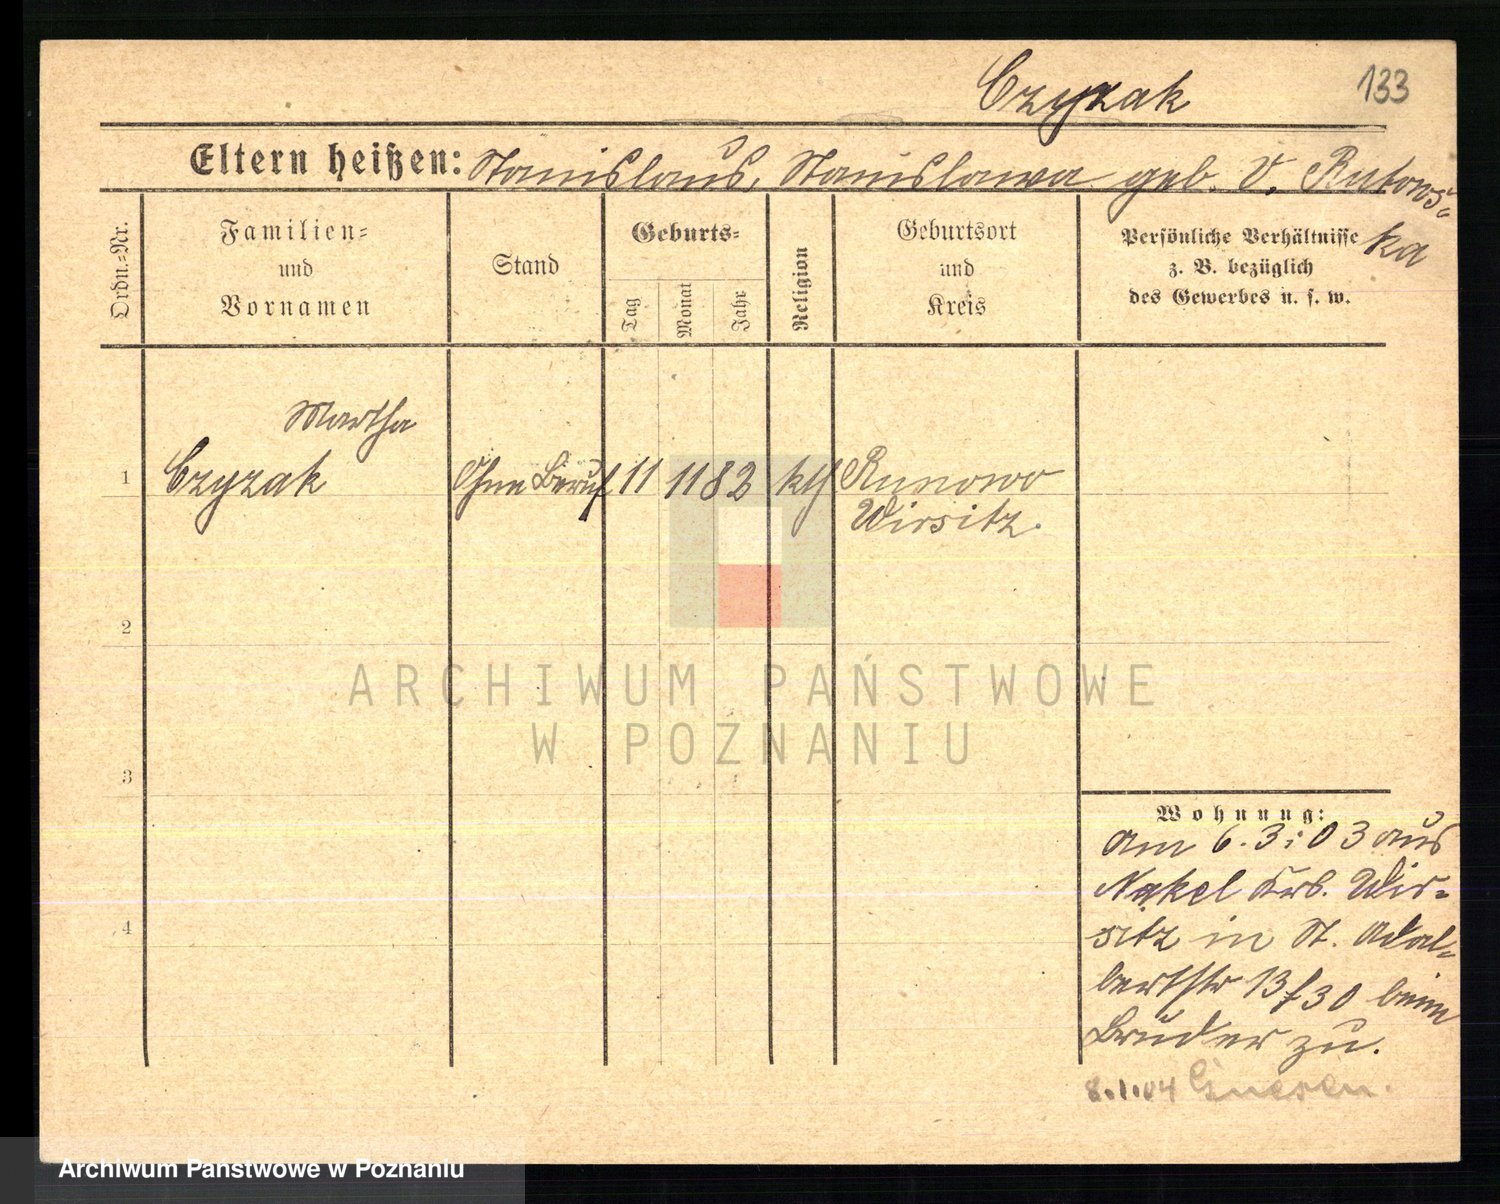 Czyzak
133
Eltern heißen: Stanislaus, Stanislawa geb. v. Rutows=
ka
Ordn.=Nr.
Familien=
und
Vornamen
Stand
Geburts=
Tag
Monat
Jahr
Religion
Geburtsort
und
Kreis
Persönliche Verhältnisse
z. B. bezüglich
des Gewerbes u. s. w.
Martha
1 Czyzak Ohne Beruf 11 11 82 kth Runowo
Wirsitz.
2
3
4
Wohnung:
Am 6.3.03 aus
Nakel Krs. Wir=
sitz in St. Adal=
bertstr 13 f 30 beim
Bruder zu.
8.1.04 Gnesen.
ARCHIWUM PAŃSTWOWE
W POZNANIU
Archiwum Państwowe w Poznaniu